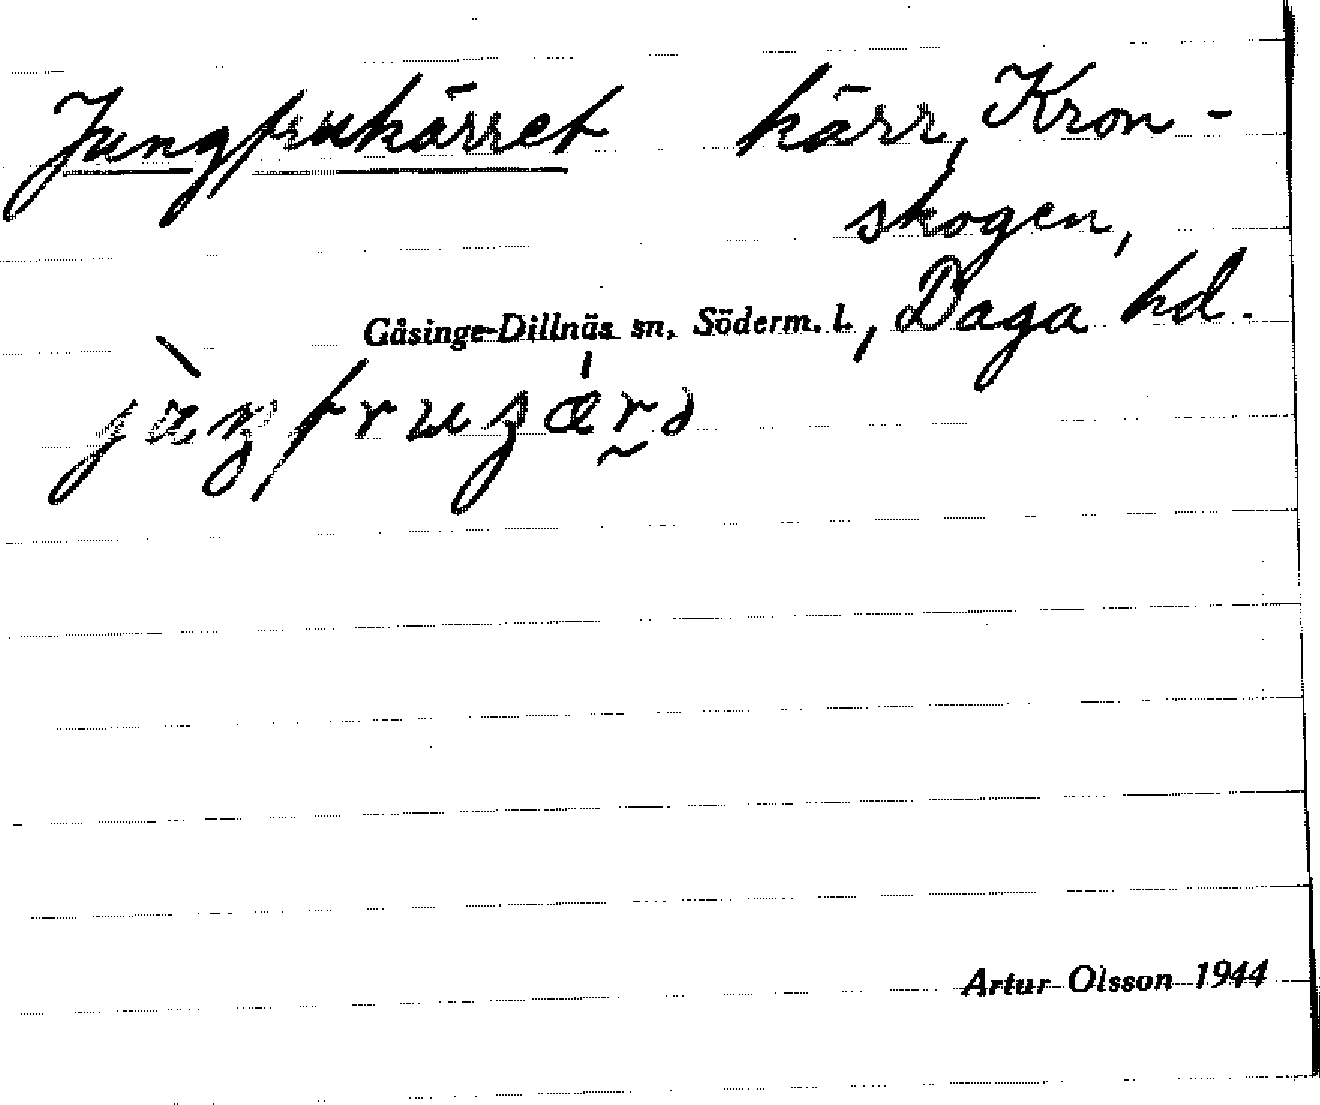 Jungfrukärret kärr, Kron-
skogen,
Gåsinge-Dillnäs sn, Söderm. l., Daga hd.
Artur Olsson 1944